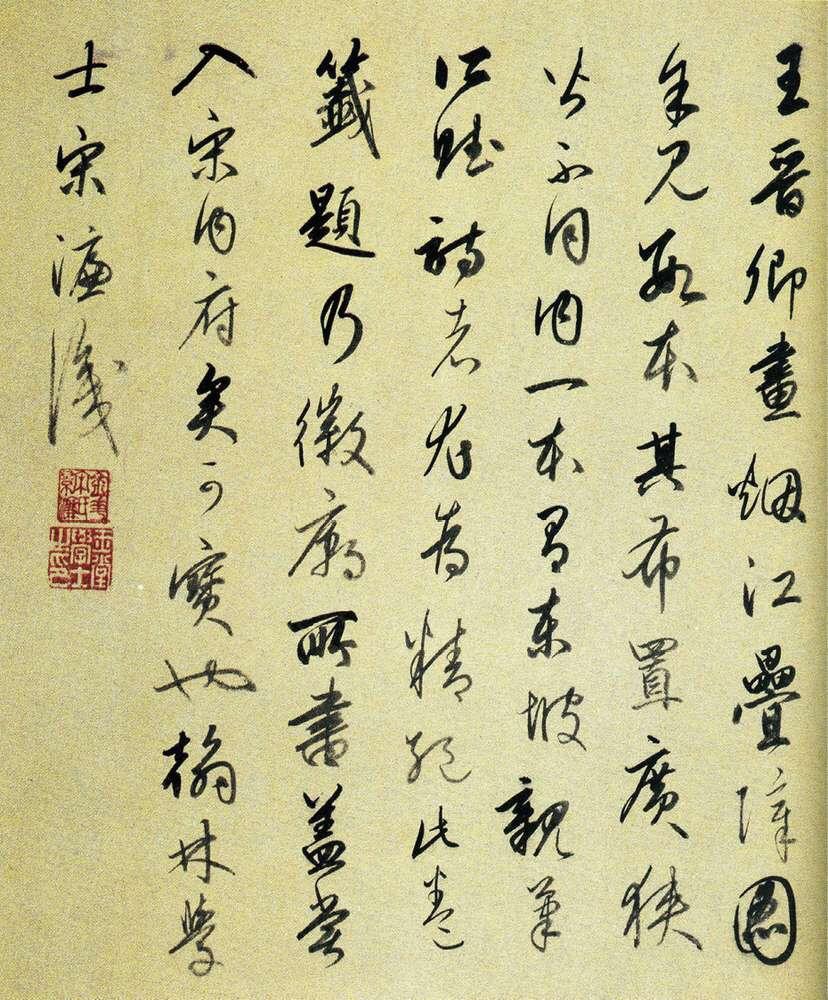 王晉卿畫烟江疊障圖
余見數本其布置廣狹
皆不同内一本有東坡親筆
所賦詩者尤爲精絕此卷
籤題乃徽廟所書蓋嘗
入宋内府矣可寶也翰林學
士宋濂識